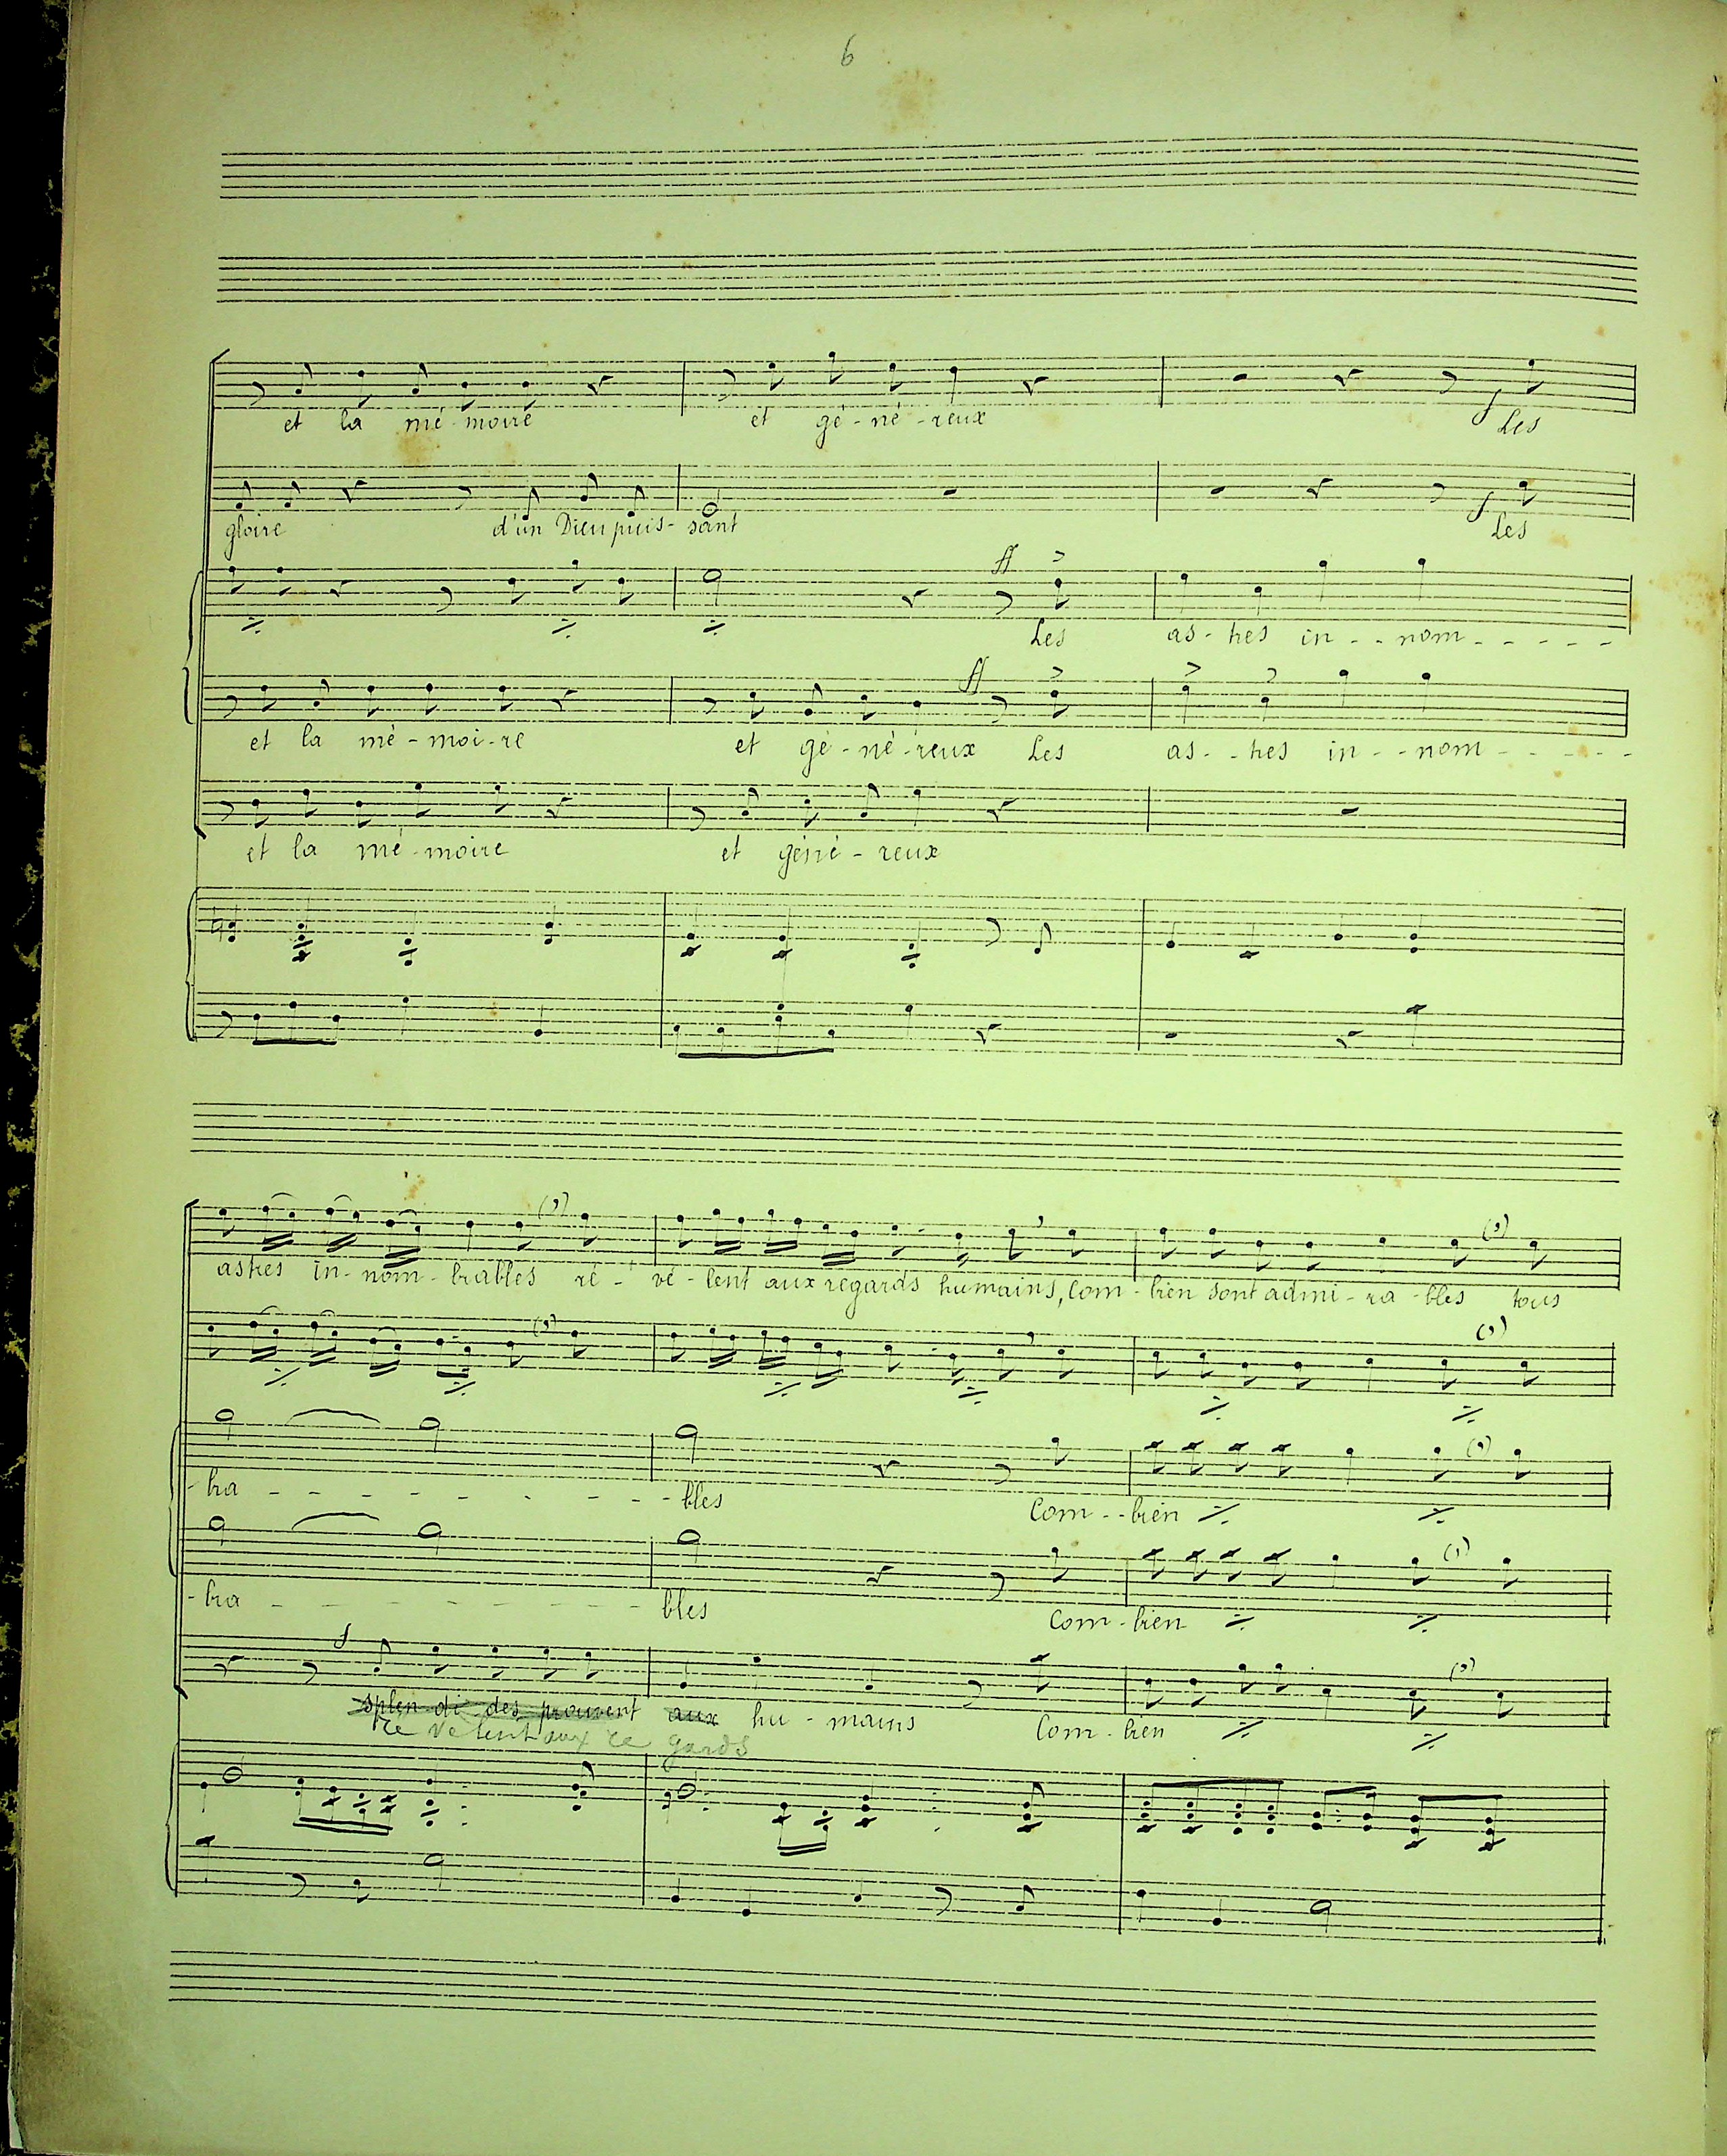 6
et la mé-moire et gé-né-reux f Les
gloire d'un Dieu puis-sant f Les
ff
Les as-tres in--nom-----
ff
et la mé-moi-re et gé-né-reux Les as--tres in--nom-----
et la mé-moire et géné-reux
astres in-nom-brables ré-vè-lent aux regards humains, Com-bien sont admi-ra-bles tous
-bra--------bles Com--bien
-bra--------bles Com-bien
f
splen-di-des prouvent aux hu-mains Com-bien
re ve lent aux re gards